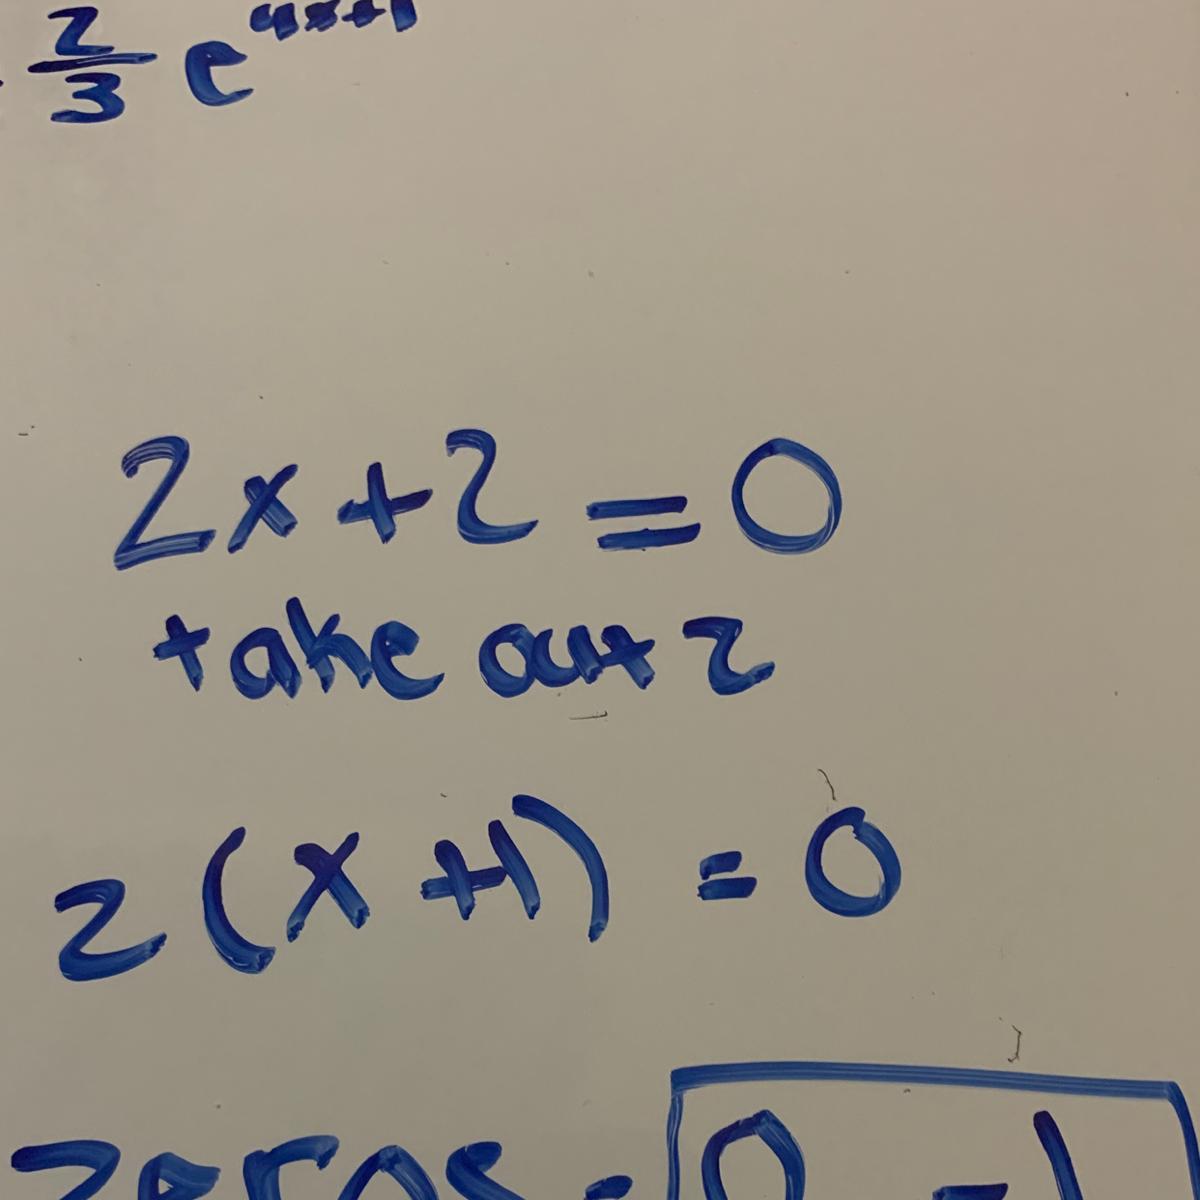 2/3 e^4x+1
2x+2=0
take out 2
2(x+1)=0
zeros = 0 -1